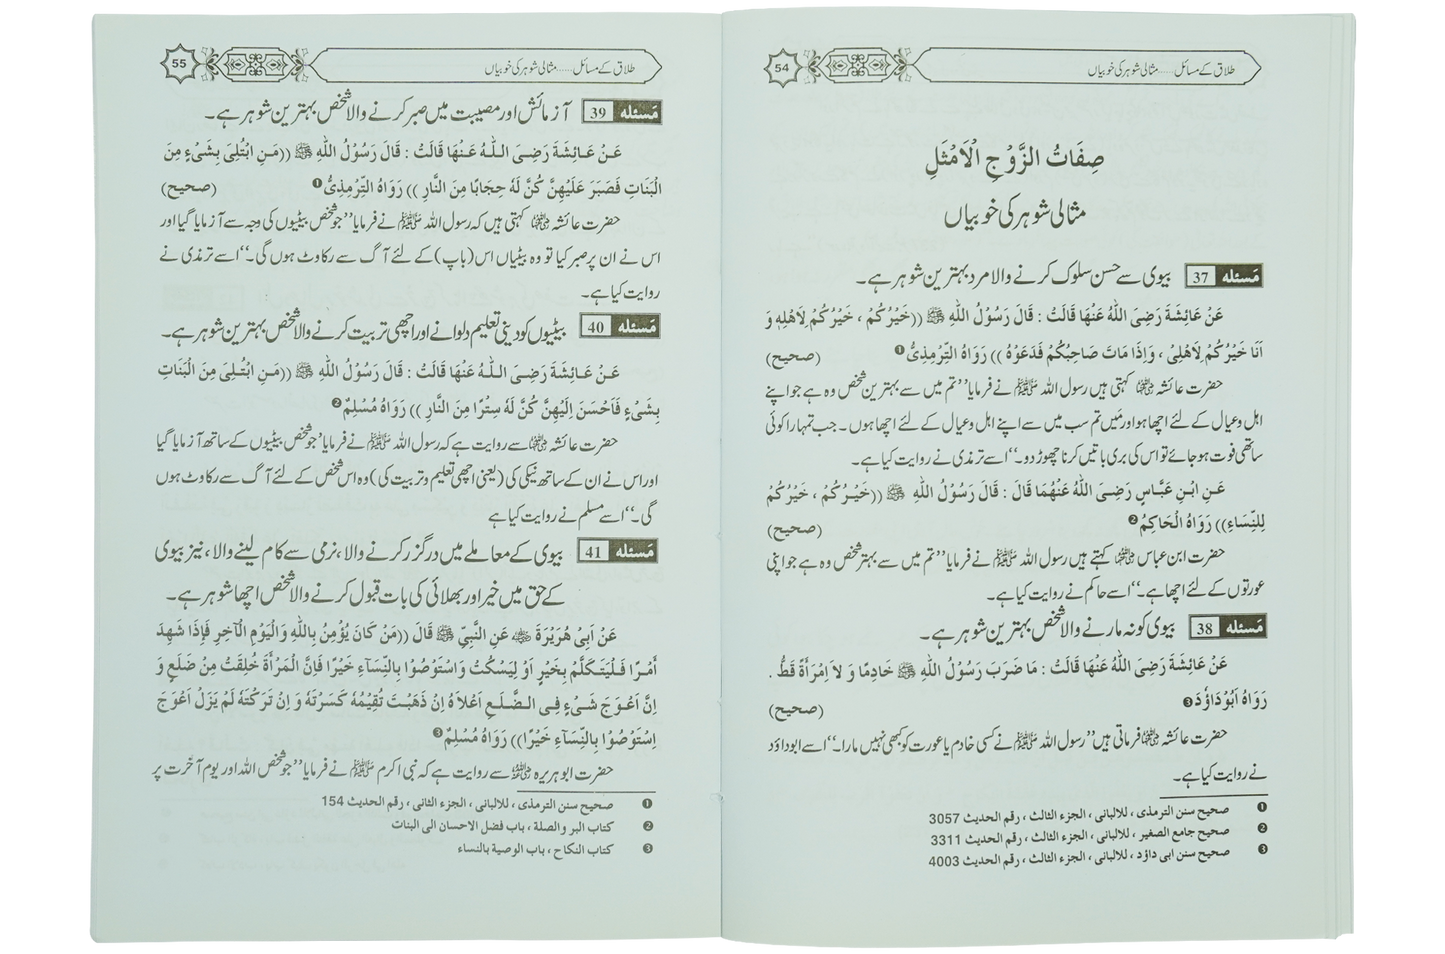 طلاق کے مسائل ..... مثالی شوہر کی خوبیاں
54
صِفَاتُ الزَّوْجِ الْاَمْثَلِ
مثالی شوہر کی خوبیاں
مَسئله 37 بیوی سے حسن سلوک کرنے والا مرد بہترین شوہر ہے۔
عَنْ عَائِشَةَ رَضِىَ اللّٰهُ عَنْهَا قَالَتْ : قَالَ رَسُوْلُ اللّٰهِ ﷺ ((خَيْرُكُمْ ، خَيْرُكُمْ لِاَهْلِهٖ وَ
اَنَا خَيْرُكُمْ لِاَهْلِىْ ، وَاِذَا مَاتَ صَاحِبُكُمْ فَدَعُوْهُ )) رَوَاهُ التِّرْمِذِىُّ ❶ (صحيح)
حضرت عائشہ رضی اللہ عنہا کہتی ہیں رسول اللہ ﷺ نے فرمایا ’’تم میں سے بہترین شخص وہ ہے جو اپنے
اہل و عیال کے لئے اچھا ہو اور مَیں تم سب میں سے اپنے اہل و عیال کے لئے اچھا ہوں۔ جب تمہارا کوئی
ساتھی فوت ہو جائے تو اس کی بری باتیں کرنا چھوڑ دو۔‘‘ اسے ترمذی نے روایت کیا ہے۔
عَنِ ابْنِ عَبَّاسٍ رَضِىَ اللّٰهُ عَنْهُمَا قَالَ : قَالَ رَسُوْلُ اللّٰهِ ﷺ ((خَيْرُكُمْ ، خَيْرُكُمْ
لِلنِّسَاءِ)) رَوَاهُ الْحَاكِمُ ❷ (صحيح)
حضرت ابن عباس رضی اللہ عنہما کہتے ہیں رسول اللہ ﷺ نے فرمایا ’’تم میں سے بہتر شخص وہ ہے جو اپنی
عورتوں کے لئے اچھا ہے۔‘‘ اسے حاکم نے روایت کیا ہے۔
مَسئله 38 بیوی کو نہ مارنے والا شخص بہترین شوہر ہے۔
عَنْ عَائِشَةَ رَضِىَ اللّٰهُ عَنْهَا قَالَتْ : مَا ضَرَبَ رَسُوْلُ اللّٰهِ ﷺ خَادِمًا وَ لاَ اِمْرَأَةً قَطُّ .
رَوَاهُ اَبُوْدَاوُدَ ❸ (صحيح)
حضرت عائشہ رضی اللہ عنہا فرماتی ہیں ’’رسول اللہ ﷺ نے کسی خادم یا عورت کو کبھی نہیں مارا۔‘‘ اسے ابوداؤد
نے روایت کیا ہے۔
❶ صحيح سنن الترمذى ، للالبانى ، الجزء الثالث ، رقم الحديث 3057
❷ صحيح جامع الصغير ، للالبانى ، الجزء الثالث ، رقم الحديث 3311
❸ صحيح سنن ابى داؤد ، للالبانى ، الجزء الثالث ، رقم الحديث 4003
طلاق کے مسائل ..... مثالی شوہر کی خوبیاں
55
مَسئله 39 آزمائش اور مصیبت میں صبر کرنے والا شخص بہترین شوہر ہے۔
عَنْ عَائِشَةَ رَضِىَ اللّٰهُ عَنْهَا قَالَتْ : قَالَ رَسُوْلُ اللّٰهِ ﷺ ((مَنِ ابْتُلِىَ بِشَىْءٍ مِنَ
الْبَنَاتِ فَصَبَرَ عَلَيْهِنَّ كُنَّ لَهُ حِجَابًا مِنَ النَّارِ )) رَوَاهُ التِّرْمِذِىُّ ❶ (صحيح)
حضرت عائشہ رضی اللہ عنہا کہتی ہیں کہ رسول اللہ ﷺ نے فرمایا ’’جو شخص بیٹیوں کی وجہ سے آزمایا گیا اور
اس نے ان پر صبر کیا تو وہ بیٹیاں اس (باپ) کے لئے آگ سے رکاوٹ ہوں گی۔‘‘ اسے ترمذی نے
روایت کیا ہے۔
مَسئله 40 بیٹیوں کو دینی تعلیم دلوانے اور اچھی تربیت کرنے والا شخص بہترین شوہر ہے۔
عَنْ عَائِشَةَ رَضِىَ اللّٰهُ عَنْهَا قَالَتْ : قَالَ رَسُوْلُ اللّٰهِ ﷺ ((مَنِ ابْتُلِىَ مِنَ الْبَنَاتِ
بِشَىْءٍ فَاَحْسَنَ اِلَيْهِنَّ كُنَّ لَهُ سِتْرًا مِنَ النَّارِ )) رَوَاهُ مُسْلِمٌ ❷
حضرت عائشہ رضی اللہ عنہا سے روایت ہے کہ رسول اللہ ﷺ نے فرمایا ’’جو شخص بیٹیوں کے ساتھ آزمایا گیا
اور اس نے ان کے ساتھ نیکی کی (یعنی اچھی تعلیم و تربیت کی) وہ اس شخص کے لئے آگ سے رکاوٹ ہوں
گی۔‘‘ اسے مسلم نے روایت کیا ہے
مَسئله 41 بیوی کے معاملے میں درگزر کرنے والا، نرمی سے کام لینے والا، نیز بیوی
کے حق میں خیر اور بھلائی کی بات قبول کرنے والا شخص اچھا شوہر ہے۔
عَنْ اَبِىْ هُرَيْرَةَ رضی اللہ عنہ عَنِ النَّبِىِّ ﷺ قَالَ ((مَنْ كَانَ يُؤْمِنُ بِاللّٰهِ وَالْيَوْمِ الْآخِرِ فَاِذَا شَهِدَ
اَمْرًا فَلْيَتَكَلَّمْ بِخَيْرٍ اَوْ لِيَسْكُتْ وَاسْتَوْصُوْا بِالنِّسَاءِ خَيْرًا فَاِنَّ الْمَرْأَةَ خُلِقَتْ مِنْ ضَلَعٍ وَ
اِنَّ اَعْوَجَ شَىْءٍ فِى الضِّلَعِ اَعْلاَهُ اِنْ ذَهَبْتَ تُقِيْمُهُ كَسَرْتَهُ وَ اِنْ تَرَكْتَهُ لَمْ يَزَلْ اَعْوَجَ
اِسْتَوْصُوْا بِالنِّسَاءِ خَيْرًا)) رَوَاهُ مُسْلِمٌ ❸
حضرت ابو ہریرہ رضی اللہ عنہ سے روایت ہے کہ نبی اکرم ﷺ نے فرمایا ’’جو شخص اللہ اور یوم آخرت پر
❶ صحيح سنن الترمذى ، للالبانى ، الجزء الثانى ، رقم الحديث 154
❷ كتاب البر والصلة ، باب فضل الاحسان الى البنات
❸ كتاب النكاح ، باب الوصية بالنساء